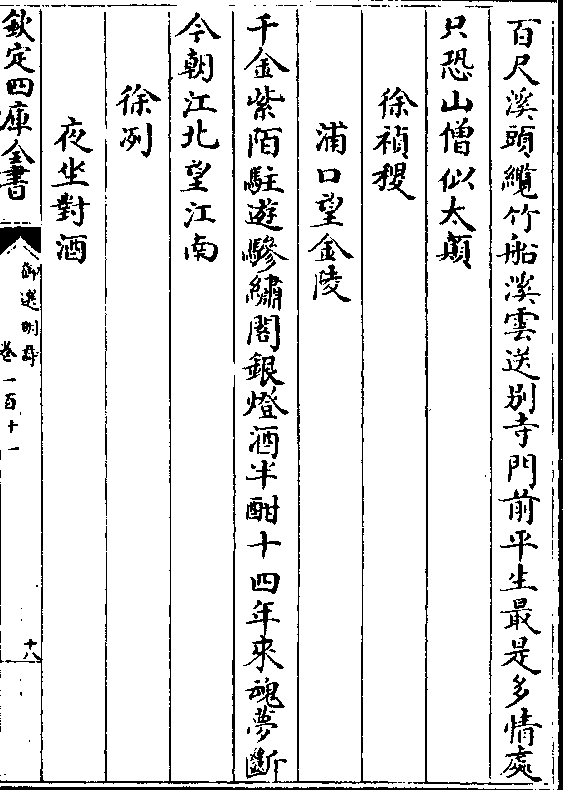 百尺溪頭纜竹船溪雲送别寺門前平生最是多情處
只恐山僧似太顛
徐禎稷
浦口望金陵
千金紫陌駐遊驂繡閣銀燈酒半酣十四年來魂夢斷
今朝江北望江南
徐冽
夜坐對酒
欽定四庫全書
御選明詩
卷一百十一
十八